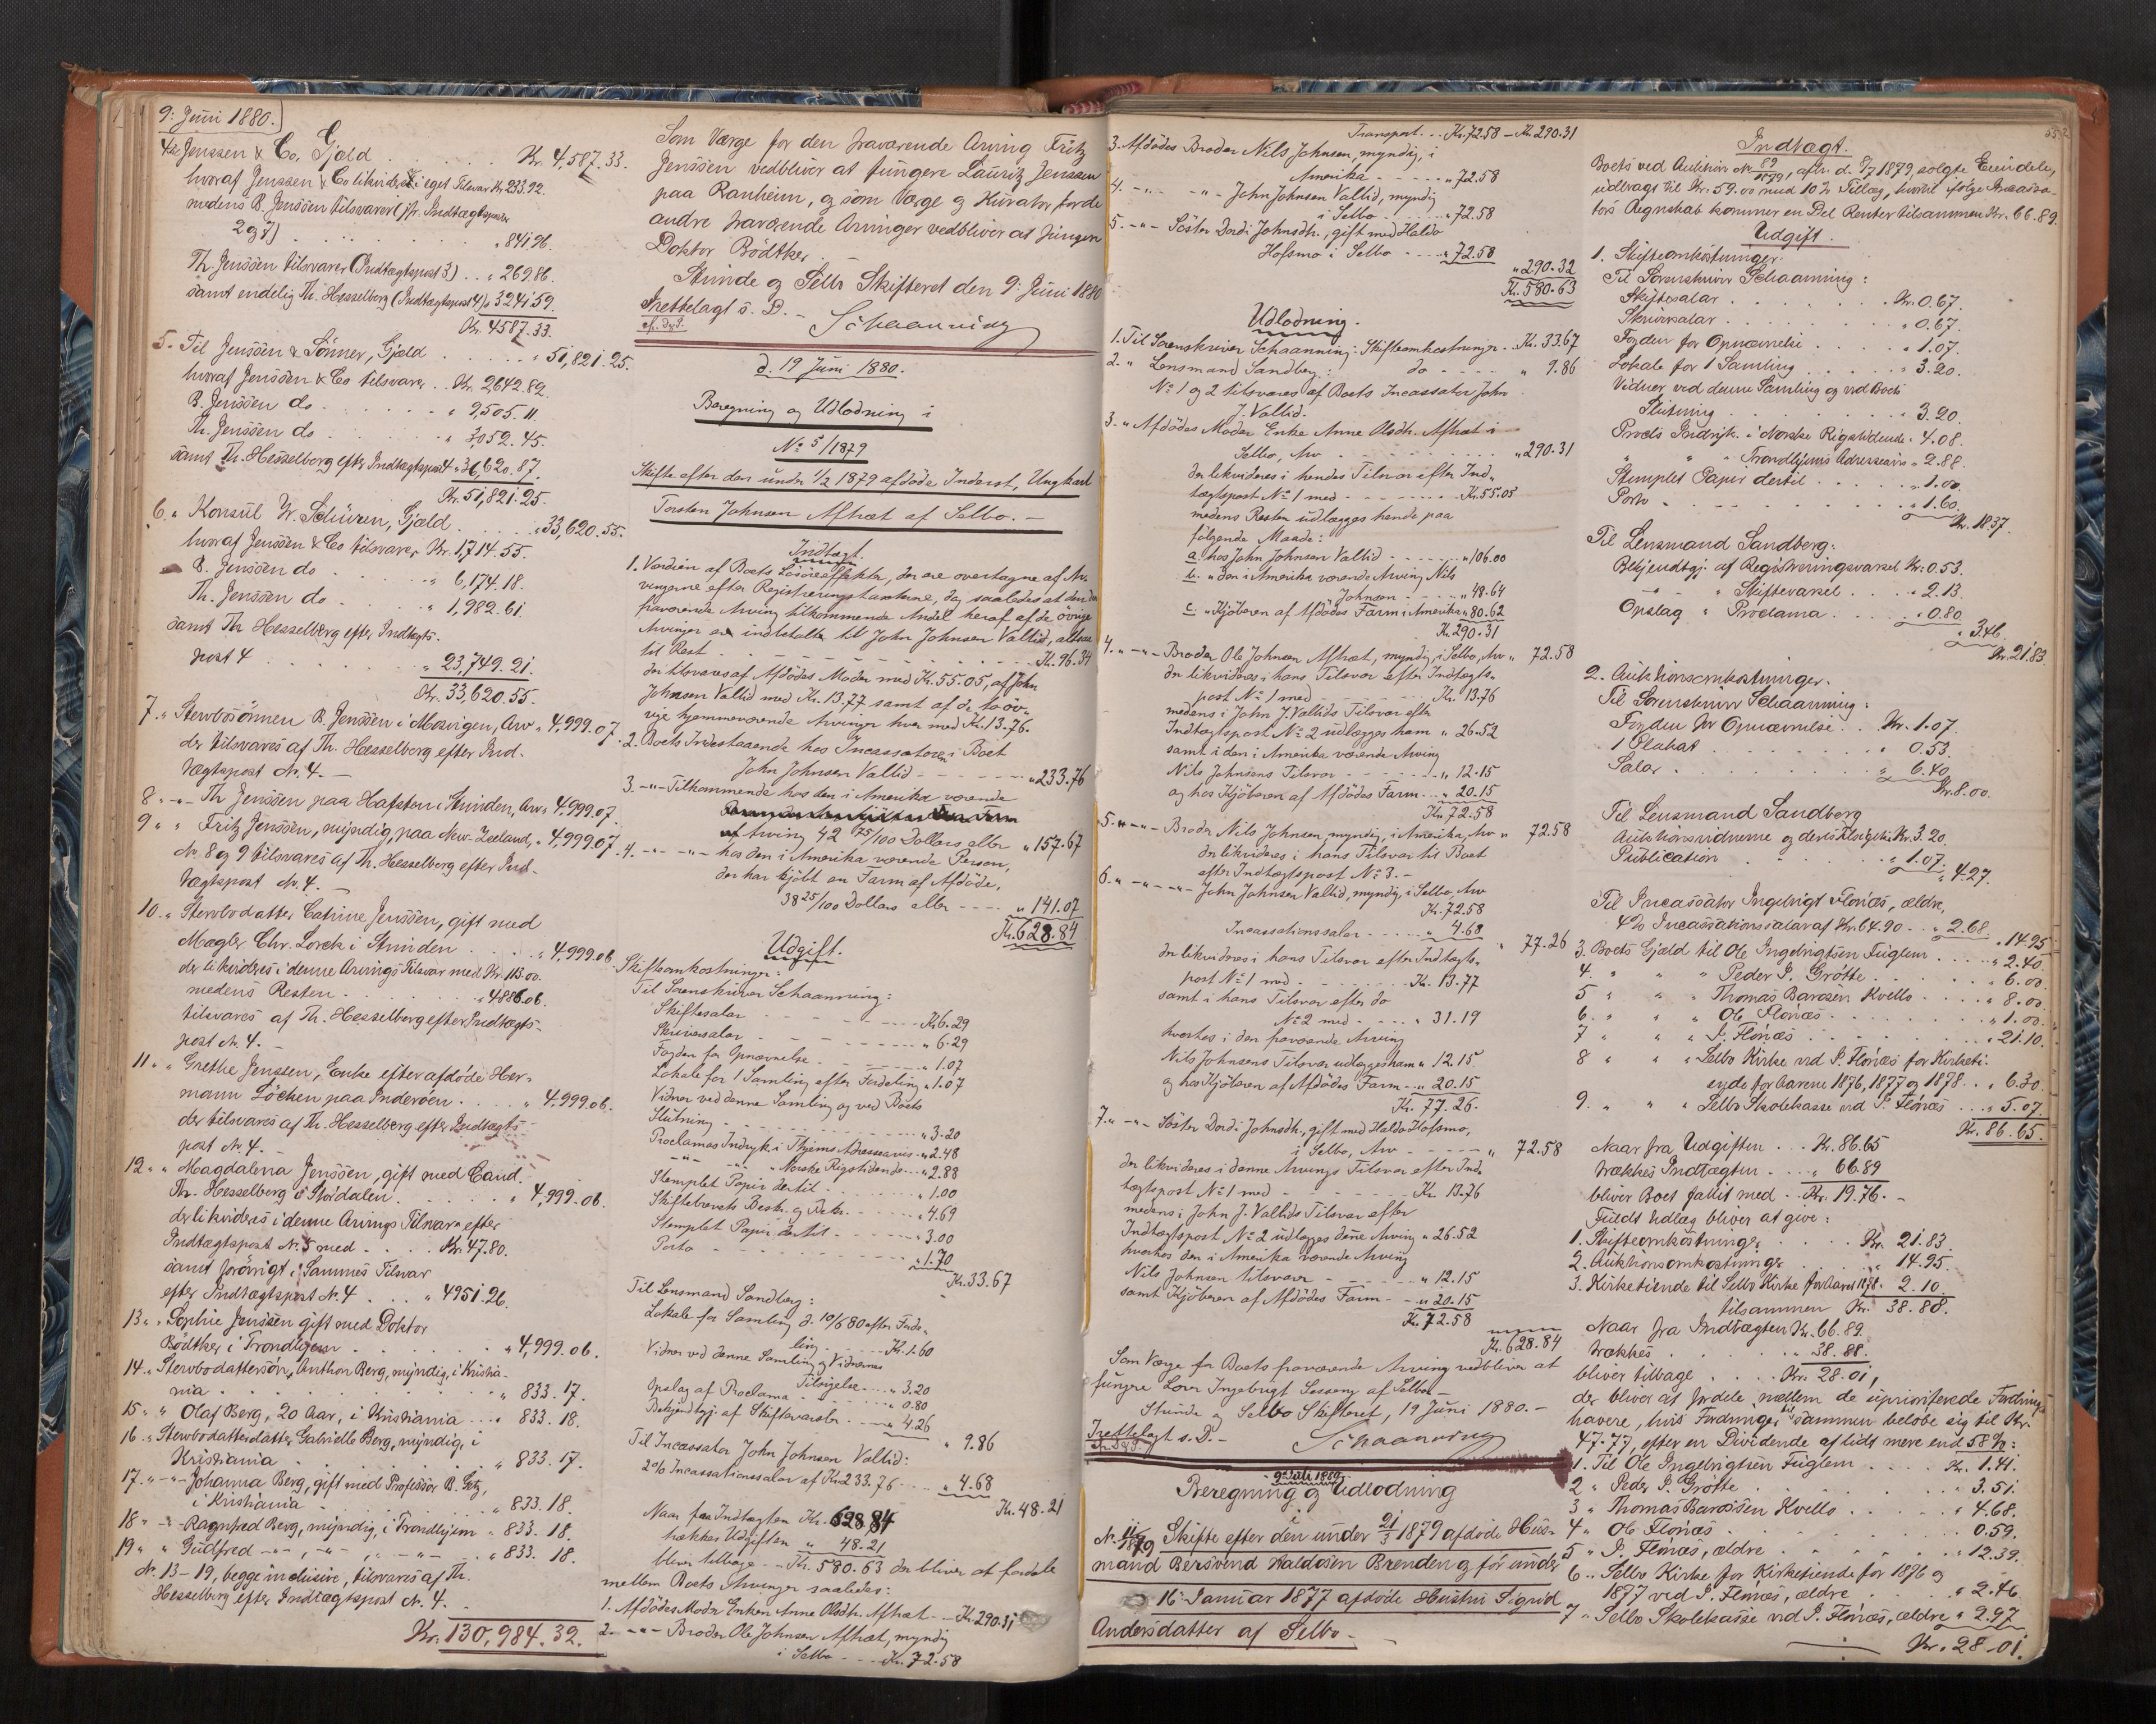 9: Juni 1880.
4. til Jenssen & Co. Gjæld . . . . Kr. 4,587.33.
hvoraf Jenssen & Co likvideres i eget Tilsvar Kr. 233.92.
medens R. Jenssen tilsvarer (jfr. Indtægtsposter
2 og 7) . . . . . " 841.96.
Th. Jenssen tilsvarer (Indtægtspost 3) . . " 269.86.
samt endelig Th. Hesselberg (Indtægtspost 4) " 3241.59.
Kr. 4587.33.
5. Til Jenssen & Sönner, Gjæld . . . " 51,821.25.
hvoraf Jenssen & Co tilsvarer . . Kr. 2642.82.
R. Jenssen do . . . . " 9,505.11.
Th. Jenssen do . . . . " 3,052.45.
samt Th. Hesselberg efter Indtægtspost 4 " 36,620.87.
Kr. 51,821.25.
6. " Konsul W. Schüren, Gjæld . . . " 33,620.55.
hvoraf Jenssen & Co tilsvarer Kr. 1,714.55.
R. Jenssen do . . . " 6,174.18.
Th. Jenssen do . . . " 1,982.61.
samt Th Hesselberg efter Indtægts-
post 4 . . . . . " 23,749.21.
Kr. 33,620.55.
7. " Stervbosönnen R. Jenssen i Mosvigen, Arv " 4,999.07.
der tilsvares af Th. Hesselberg efter Ind-
tægtspost Nr. 4. —
8 " -"- Th Jenssen paa Hafsten i Strinden, Arv " 4,999.07.
9 " " Fritz Jenssen, myndig, paa New-Zeeland, " 4,999.07.
Nr. 8 og 9 tilsvares af Th. Hesselberg efter Ind-
tægtspost Nr. 4. —
10. " Stervbodatter Catrine Jenssen, gift med
Mægler Chr. Lorck i Strinden . . . " 4,999.06.
der likvideres i denne Arvings Tilsvar med Kr. 113.00.
medens Resten . . . . " 4886.06.
tilsvares af Th. Hesselberg efter Indtægts-
post Nr 4. —
11. " " Grethe Jenssen, Enke efter afdöde Her-
mann Löchen paa Inderöen . . . " 4,999.06.
der tilsvares af Th. Hesselberg efter Indtægts-
post Nr. 4. —
12. " " Magdalena Jenssen, gift med Cand.
Th. Hesselberg i Stördalen . . . " 4,999.06.
der likvideres i denne Arvings Tilsvar efter
Indtægtspost Nr. 5 med . . . Kr. 47.80.
samt forövrigt i Sammes Tilsvar
efter Indtægtspost Nr. 4 . . . " 4951.26.
13. " " Sophie Jenssen gift med Doktor
Bödtker i Trondhjem . . . . " 4,999.06.
14. " Stervbodattersön, Anthon Berg, myndig, i Kristia-
nia . . . . . . " 833.17.
15. " " Olaf Berg, 20 Aar, i Kristiania . . . " 833.18.
16. " Stervbodatterdatter Gabrielle Berg, myndig, i
Kristiania . . . . . " 833.17.
17. " -"- Johanna Berg, gift med Professor B. Getz,
i Kristiania . . . . . " 833.18.
18. " -"- Ragnfred Berg, myndig, i Trondhjem " 833.18.
19. " " Gudfred -"-, -"-, -"- . . " 833.18.
Nr. 13–19, begge inclusive, tilsvares af Th.
Hesselberg efter Indtægtspost Nr. 4. —
Kr. 130,984.32.
Som Værge for den fraværende Arving Fritz
Jenssen vedbliver at fungere Lauritz Jenssen
paa Ranheim, og som Værge og Kurator for de
andre fraværende Arvinger vedbliver at fungere
Doktor Bödtker.
Strinde og Selbo Skifteret den 9: Juni 1880
Fretteslagt s. D. — Schaanning
d. 19 Juni 1880.
Beregning og Udlodning i
No 5/1879
Skifte efter den under 1/2 1879 afdöde Inderst, Ungkarl
Torsten Johnsen Aftræt af Selbo. —
Indtægt.
1. Værdien af Boets Lösöreeffekter, der ere overtagne af Ar-
vingerne efter Registreringstaxterne, dog saaledes at den
fraværende Arving tilkommende Andel heraf af de övrige
Arvinger er indbetalte til John Johnsen Vallid, altsaa
til Rest . . . . . . Kr. 96.34
der tilsvares af Afdödes Moder med Kr. 55.05, af John
Johnsen Vallid med Kr. 13.77 samt af de to öv-
rige hjemmeværende Arvinger hver med Kr. 13.76.
2. Boets Indestaaende hos Incassatoren i Boet
John Johnsen Vallid . . . . " 233.76
3. -"- Tilkommende hos den i Amerika værende
Arving 42 75/100 Dollars eller " 157.67
4. -"- -"- hos den i Amerika værende Person,
der har kjöbt en Farm af Afdöde,
38 25/100 Dollars eller . . . . " 141.07
Kr. 628.84
Udgift.
Skifteomkostninger:
Til Sorenskriver Schaanning:
Skiftesalær . . . . Kr. 6.29
Skriversalær . . . . " 6.29
Fogden for Opnævnelse . . . . " 1.07
Lokale for 1 Samling efter Fordeling " 1.07
Vidner ved denne Samling og ved Boets
Slutning . . . . . " 3.20
Proclamas Indryk. i Thjems Adresseavis . " 2.48
-"- -"- " Norske Rigstidende . . " 2.88
Stemplet Papir dertil . . . . " 1.00
Skiftebrevets Beskr. og Dek. . . . " 4.69
Stemplet Papir dertil . . . . " 3.00
Porto . . . . . " 1.70
Kr. 33.67
Til Lensmand Sandberg:
Lokale for Samling d. 10/6 80 efter Forde-
ling . . . Kr. 1.60
Vidner ved denne Samling og Vidnernes
Tilsigelse . . . " 3.20
Opslag af Proclama . . . . " 0.80
Bekjendtgj. af Skiftevarsler . . . " 4.26
" 9.86
Til Incassator John Johnsen Vallid:
2% Incassationssalær af Kr. 233.76 . . . " 4.68
Kr. 48.21
Naar fra Indtægten Kr. 628.84
trækkes Udgiften " 48.21
bliver tilbage . . Kr. 580.63 der bliver at fordele
mellem Boets Arvinger saaledes:
1. Afdödes Moder Enken Anne Olsdtr. Aftræt . . Kr. 290.31
2. -"- Broder Ole Johnsen Aftræt, myndig
i Selbo . . . Kr. 72.58
Transport . . Kr. 72.58 – Kr. 290.31
3. Afdödes Broder Nils Johnsen, myndig, i
Amerika . . . . . " 72.58
4. -"- -"- John Johnsen Vallid, myndig
i Selbo . . . . " 72.58
5. -"- Söster Dordi Johnsdtr., gift med Haldo
Hofsmo i Selbo . . . " 72.58
" 290.32
Kr. 580.63
Udlodning.
1. Til Sorenskriver Schaanning: Skifteomkostninger . Kr. 33.67
2. " Lensmand Sandberg: do . . . . " 9.86
No 1 og 2 tilsvares af Boets Incassator John
J. Vallid.
3. " Afdödes Moder Enke Anne Olsdtr. Aftræt i
Selbo, Arv . . . . . " 290.31
der likvideres i hendes Tilsvar efter Ind-
tægtspost No 1 med . . . . Kr. 55.05
medens Resten udlægges hende paa
fölgende Maade:
a. hos John Johnsen Vallid . . . . " 106.00
b. " den i Amerika værende Arving Nils
Johnsen . . . " 48.64
c. " Kjöberen af Afdödes Farm i Amerika " 80.62
Kr. 290.31
4. " -"- Broder Ole Johnsen Aftræt, myndig, i Selbo, Arv " 72.58
der likvideres i hans Tilsvar efter Indtægts-
post No 1 med . . . . Kr. 13.76
medens i John J. Vallids Tilsvar efter
Indtægtspost No 2 udlægges ham " 26.52
samt i den i Amerika værende Arving
Nils Johnsens Tilsvar . . . " 12.15
og hos Kjöberen af Afdödes Farm . . " 20.15
Kr. 72.58
5. " -"- Broder Nils Johnsen, myndig, i Amerika, Arv " 72.58
der likvideres i hans Tilsvar til Boet
efter Indtægtspost No 3. —
6. " -"- -"- John Johnsen Vallid, myndig, i Selbo, Arv
Kr. 72.58
Incassationssalær . . . " 4.68
" 77.26
der likvideres i hans Tilsvar efter Indtægts-
post No 1 med . . . . Kr. 13.77
samt i hans Tilsvar efter do
No 2 med . . . " 31.19
hvorhos i den fraværende Arving
Nils Johnsens Tilsvar udlægges ham " 12.15
og hos Kjöberen af Afdödes Farm . . " 20.15
Kr. 77.26.
7. " -"- Söster Dordi Johnsdtr., gift med Haldo Hofsmo,
i Selbo, Arv . . . . " 72.58
der likvideres i denne Arvings Tilsvar efter Ind-
tægtspost No 1 med . . . . Kr. 13.76
medens i John J. Vallids Tilsvar efter
Indtægtspost No 2 udlægges denne Arving " 26.52
hvorhos den i Amerika værende Arving
Nils Johnsen tilsvarer . . . . " 12.15
samt Kjöberen af Afdödes Farm . . " 20.15
Kr. 72.58
Kr. 628.84
Som Værge for Boets fraværende Arving vedbliver at
fungere Lars Ingebrigt Sesseng af Selbo —
Strinde og Selbo Skifteret, 19 Juni 1880. —
Fretteslagt s. D. — Schaanning
9 Juli 1880.
Beregning og Udlodning
i
Nr. 11/1879 Skifte efter den under 21/3 1879 afdöde Hus-
mand Bersvend Haldosen Brenden og för under
16: Januar 1877 afdöde Hustru Sigrid
Andersdatter af Selbo —
552
Indtægt.
Boets ved Auktion Nr 89/1879, afh. d. 9/7 1879, solgte Eiendele,
udbragt til Kr. 59.00 med 10% Tillæg, hvortil fölge Incassa-
tors Regnskab kommer en Del Renter tilsammen Kr. 66.89.
Udgift.
1. Skifteomkostninger.
Til Sorenskriver Schaanning:
Skiftesalær . . . . . Kr. 0.67.
Skriversalær . . . . . " 0.67.
Fogden for Opnævnelse . . . . " 1.07.
Lokale for 1 Samling . . . . " 3.20.
Vidner ved denne Samling og ved Boets
Slutning . . . . . " 3.20
Procls Indryk. i Norske Rigstidende " 4.08.
" " " Trondhjems Adresseavis " 2.88.
Stemplet Papir dertil . . . . " 1.00.
Porto . . . . . . " 1.60.
Kr. 18.37.
Til Lensmand Sandberg:
Bekjendtgj. af Registreringsvarsel Kr. 0.53.
-"- " Skiftevarsel . . . " 2.13.
Opslag " Proclama . . . . " 0.80.
" 3.46.
Kr. 21.83.
2. Auktionsomkostninger.
Til Sorenskriver Schaanning:
Fogden for Opnævnelse . . Kr. 1.07.
1 Plakat . . . . . " 0.53.
Salær . . . . . " 6.40.
Kr. 8.00.
Til Lensmand Sandberg
Auktionsvidnerne og deres Tilsigelse Kr. 3.20.
Publication . . . . . " 1.07.
" 4.27.
Til Incassator Ingebrigt Flönæs, ældre,
4% Incassationssalær af Kr. 64.90 . . " 2.68.
" 14.95
3. Boets Gjæld til Ole Ingebrigtsen Fuglem . . . . " 2.40.
4. " " " Peder J. Grötte . . . . " 6.00.
5 " " " Thomas Baroesen Kvello . . . . " 8.00.
6. " " " Ole Flönæs . . . . . " 1.00.
7 " " " I. Flönæs . . . . . " 21.10.
8 " " " Selbo Kirke ved I. Flönæs for Kirketi-
ende for Aarene 1876, 1877 og 1878 . . " 6.30.
9. " " " Selbo Skolekasse ved I. Flönæs . . . " 5.07.
Kr. 86.65.
Naar fra Udgiften . . . Kr. 86.65
trækkes Indtægten . . . " 66.89
bliver Boet fallit med . . Kr. 19.76. —
Fuldt Udlæg bliver at give:
1. Skifteomkostninger . . . Kr. 21.83.
2. Auktionsomkostninger . . . " 14.95.
3. Kirketiende til Selbo Kirke for Aaret 1878 . " 2.10.
tilsammen Kr. 38.88.
Naar fra Indtægten Kr. 66.89.
trækkes . . . . " 38.88.
bliver tilbage . . . Kr. 28.01,
der bliver at fordele mellem de uprioriterede Fordrings-
havere, hvis Fordringer tilsammen belöbe sig til Kr.
47.77, efter en Dividende af lidt mere end 58%:
1. Til Ole Ingebrigtsen Fuglem . . . . Kr. 1.41.
2 " Peder J. Grötte . . . . . " 3.51.
3 " Thomas Baroesen Kvello . . . . " 4.68.
4 " Ole Flönæs . . . . . " 0.59.
5 " I. Flönæs, ældre . . . . . " 12.39.
6 " Selbo Kirke for Kirketiende for 1876 og
1877 ved I. Flönæs, ældre . . . " 2.46.
7 " Selbo Skolekasse ved I. Flönæs, ældre " 2.97
Kr. 28.01.